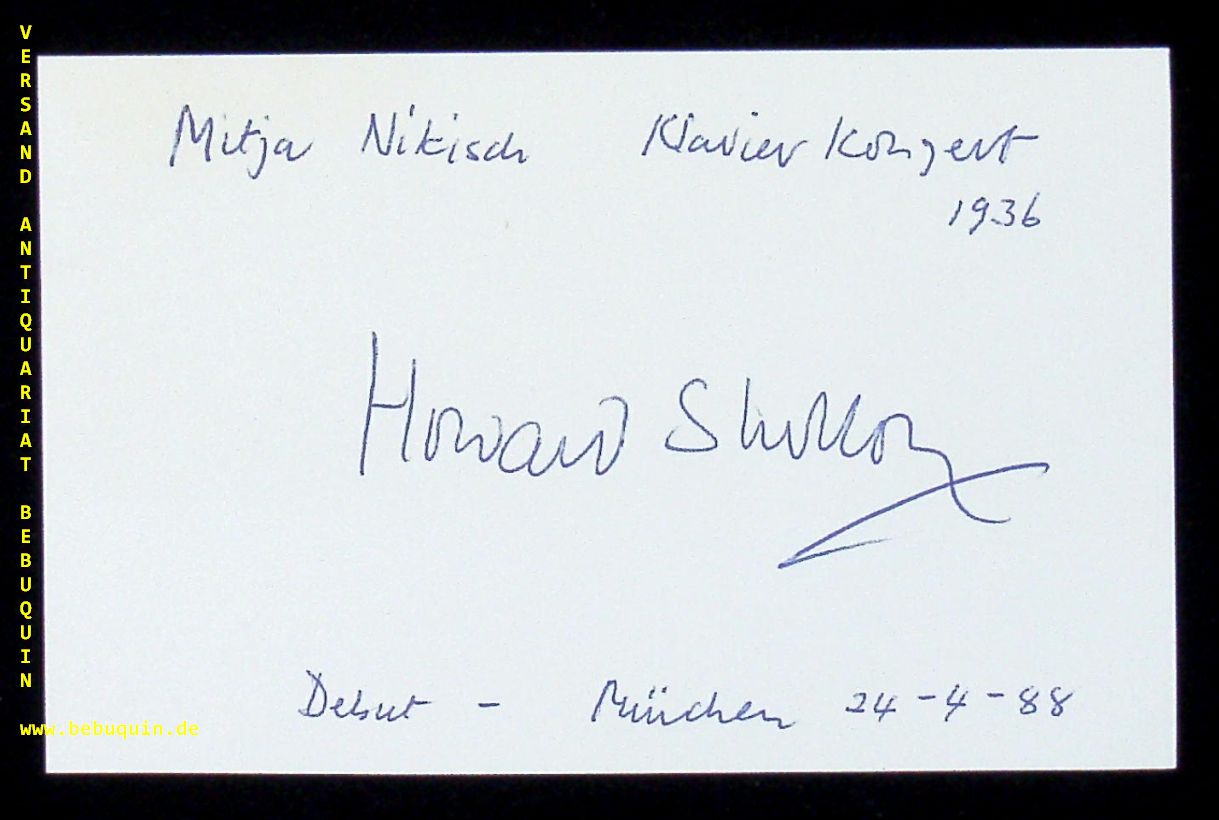 VERSAND ANTIQUARIAT BEBUQUIN
Mitja Nikisch Klavier Konzert
1936
Howard Shelley
Debut - München 24-4-88
www.bebuquin.de